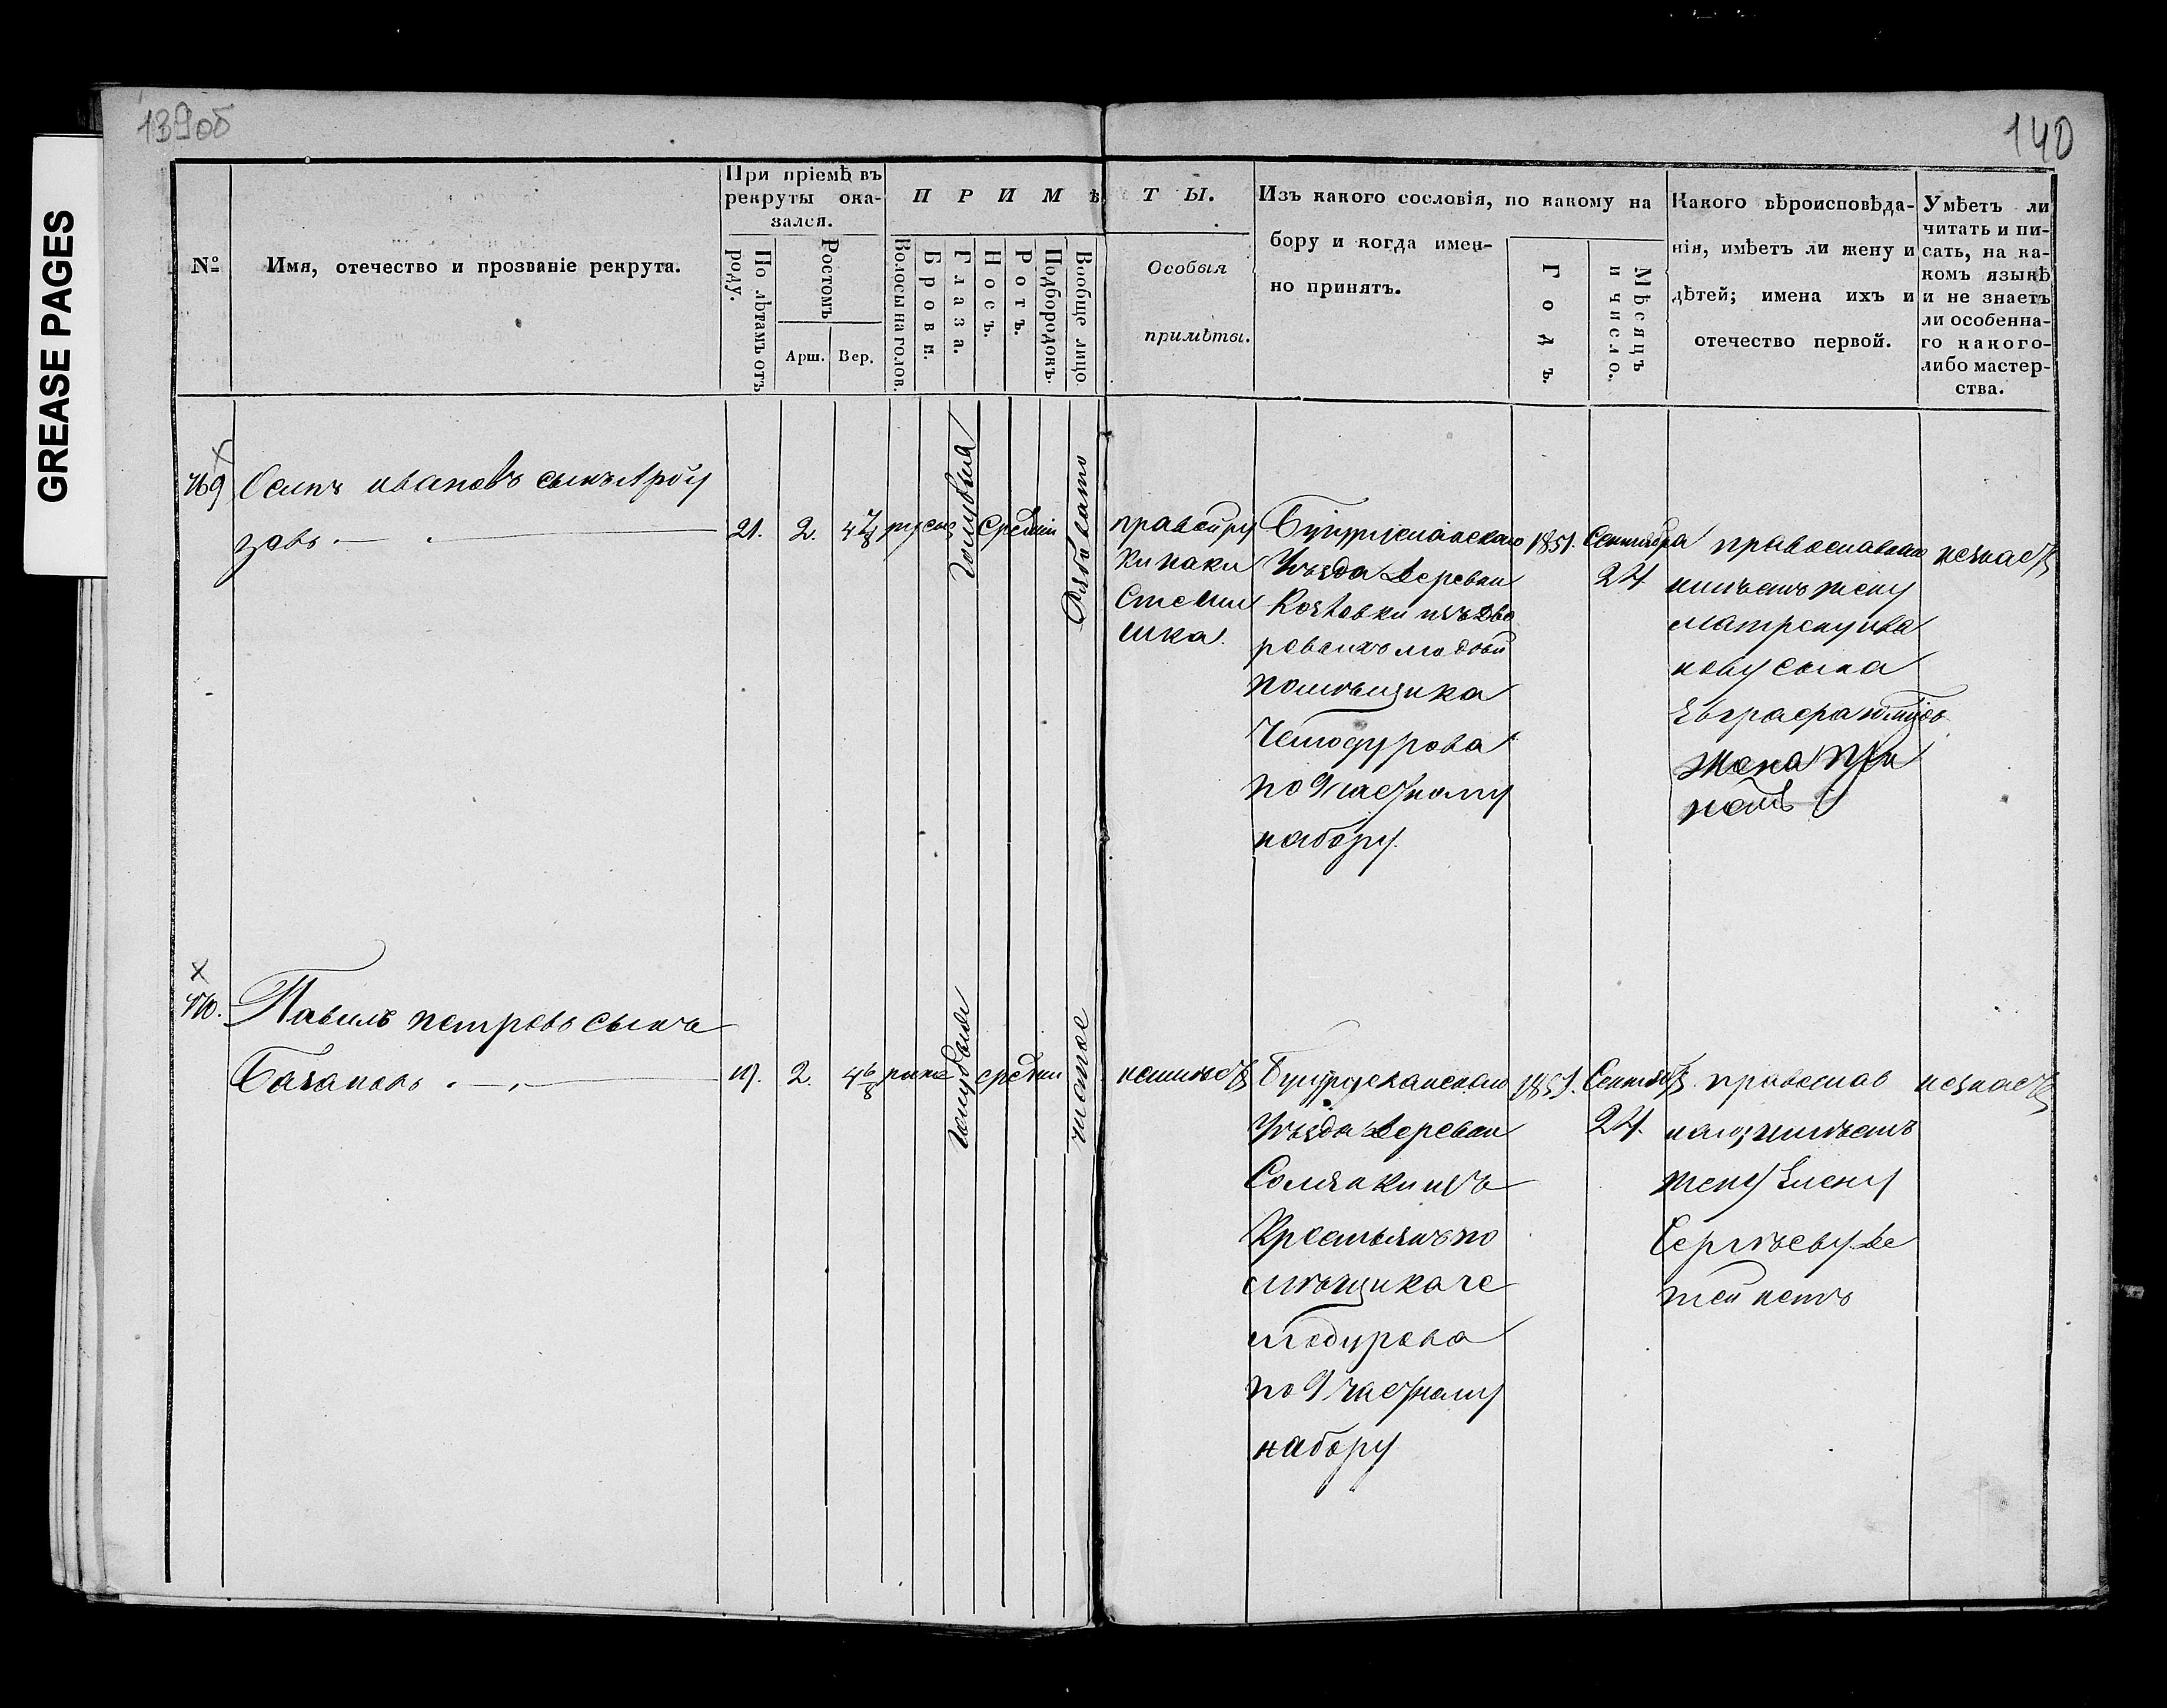 139об
140
GREASE PAGES
№
Имя, отечество и прозваніе рекрута.
При пріемѣ въ
рекруты ока-
зался.
По лѣтамъ отъ
роду.
Ростомъ
Арш.
Вер.
ПРИМѢ
ТЫ.
Волосы на голов.
Брови.
Глаза.
Носъ.
Ротъ.
Подбородокъ.
Вообще лицо.
Особыя
примѣты.
Изъ какого сословія, по какому на
бору и когда имен-
но принятъ.
Годъ.
Мѣсяцъ
и число.
Какого вѣроисповѣда-
нія, имѣетъ ли жену и
дѣтей; имена ихъ и
отечество первой.
Умѣетъ ли
читать и пи-
сать, на ка-
комъ языкѣ
и не знаетъ
ли особенна-
го какого-
либо мастер-
ства.
169
Осипъ ивановъ сынъ
зовъ
21.
2.
4 7/8
русые
голубыя
средній
Рябовато
правой ру
ки наки
Бугурусланскаго
Уѣзда Деревни
Козловки изъ дво
ровыхъ людей
помѣщика
Чемодурова
по 9 частному
набору.
1851.
Сентября
24
православнаго
имѣетъ жену
матрену ива
нову сына
Евграфа
Жена при
нетъ
незнаетъ
170.
Павилъ петровъ сынъ
Базановъ
19.
2.
4 6/8
голубыя
средни
чистое
неимеетъ
Бугурусланскаго
Уѣзда Деревни
изъ
Крестьянъ по
мѣщика че
модурова
по 9 частному
набору
1851.
Сентяб
24.
православ
наго, имѣетъ
жену Елену
Сергѣеву. Де
тей нетъ
незнаетъ